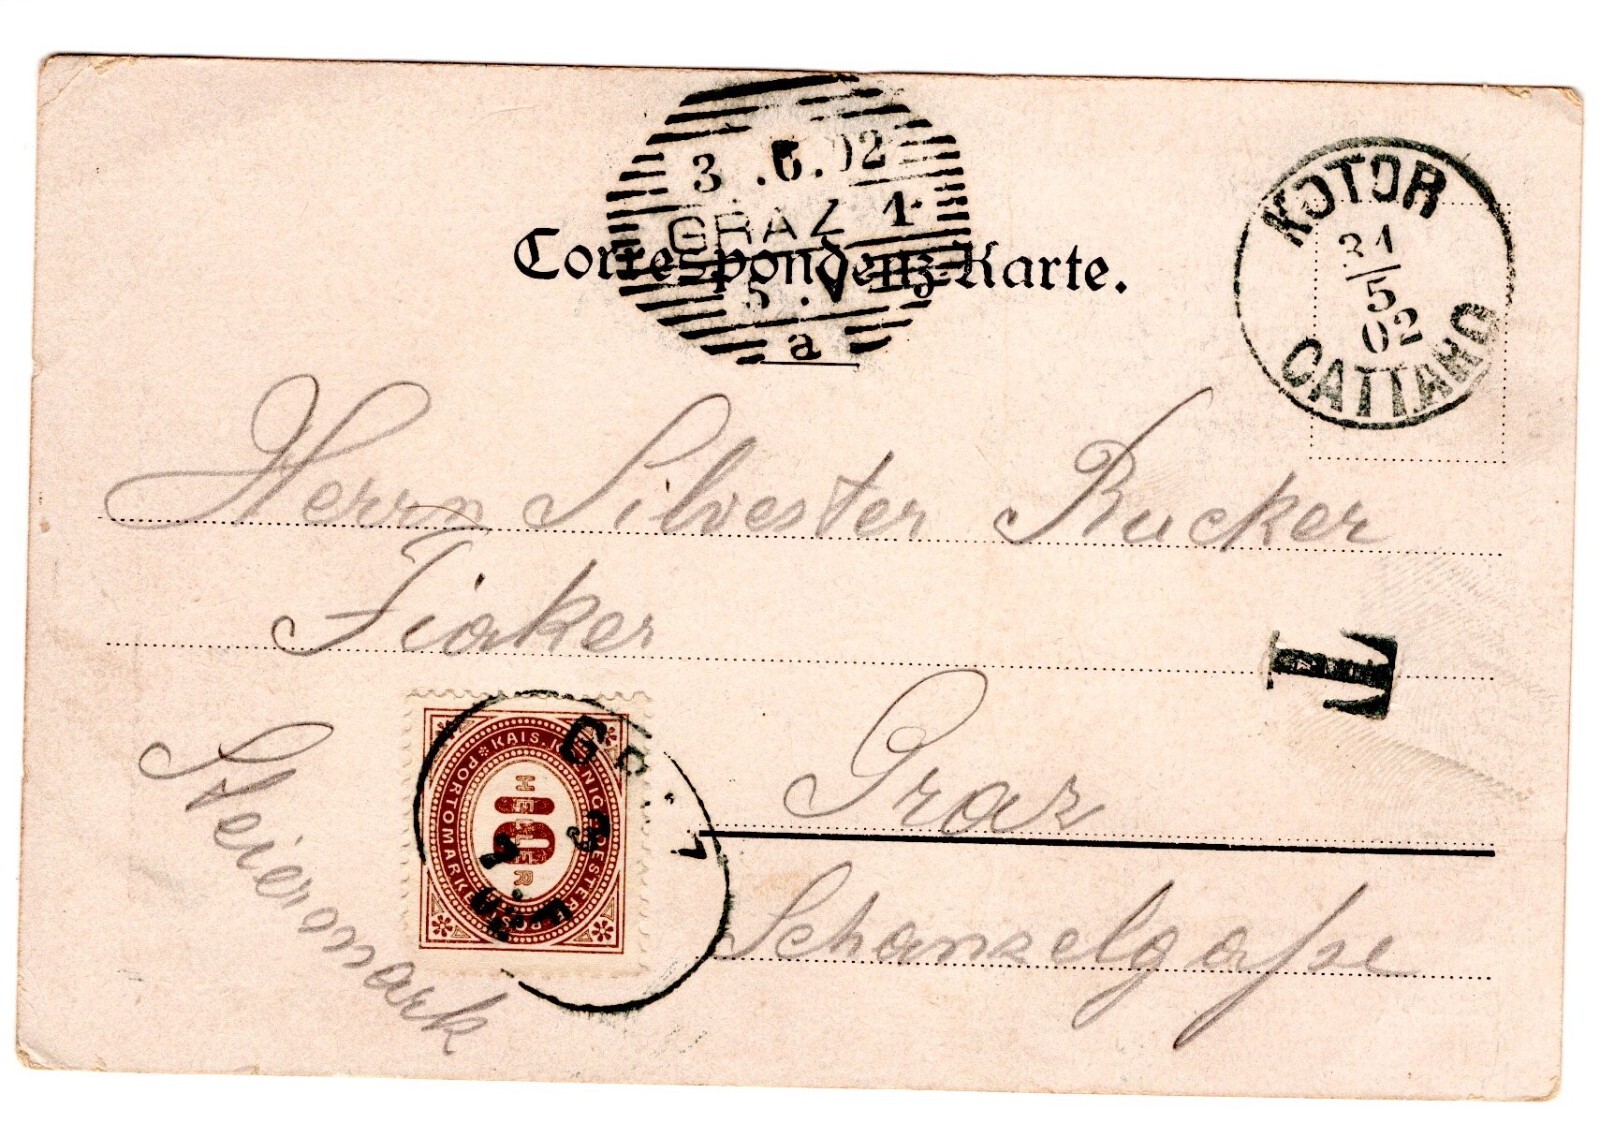 3 .6.02
GRAZ 1
5 . V
a
Correspondenz-Karte.
KOTOR
31
5
02
CATTARO
Herrn Silvester Rucker
Fiaker
T
Graz
Schanzelgaße
Steiermark
KAIS. KÖNIGL. OESTERR. POST
PORTOMARKE
10
HELLER
GRAZ
3